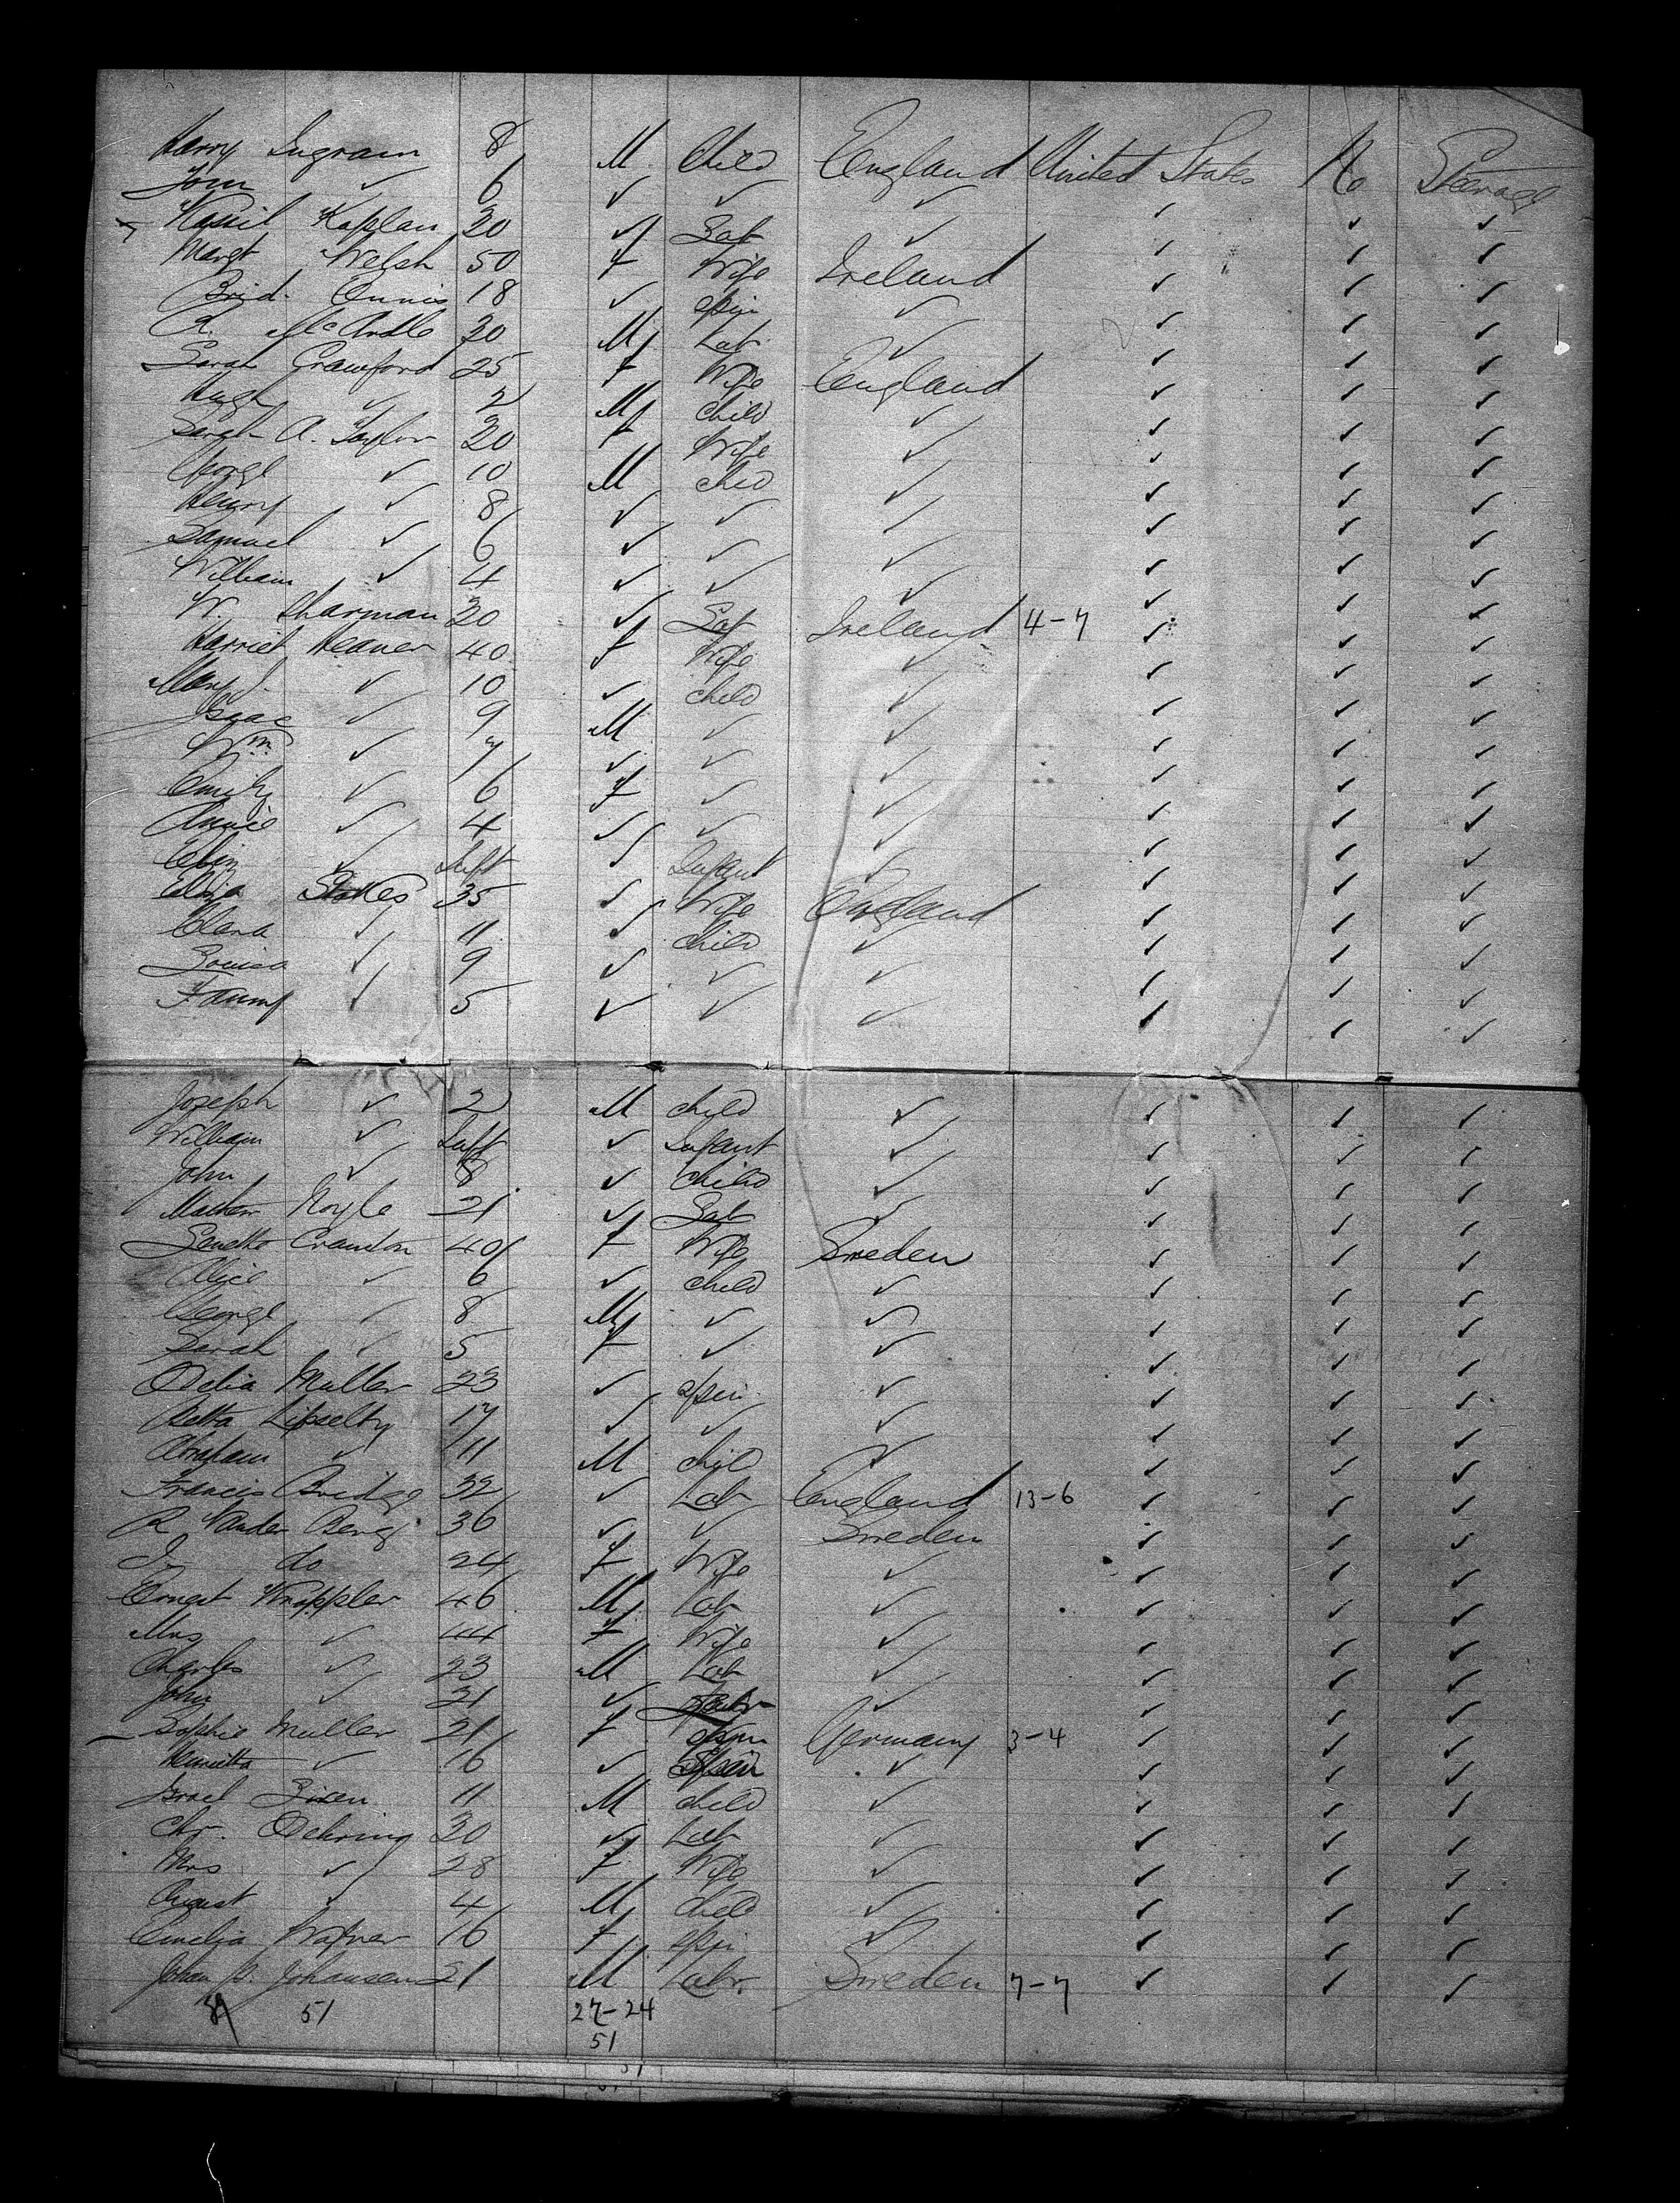 Harry Ingram 8 M Child England United States No Steerage
Tom ✓ 6 ✓ ✓ ✓ ✓ ✓ ✓
Kaplan 30 ✓ Lab ✓ ✓ ✓ ✓
Margt Welsh 50 F Wife Ireland ✓ ✓ ✓
Brid. Ennis 18 ✓ Spin ✓ ✓ ✓ ✓
McArdle 30 M Lab ✓ ✓ ✓ ✓
Sarah Crawford 25 F Wife England ✓ ✓ ✓
Hugh ✓ 2 M Child ✓ ✓ ✓ ✓
Sarah A. Taylor 30 F Wife ✓ ✓ ✓ ✓
George ✓ 10 M Child ✓ ✓ ✓ ✓
Henry ✓ 8 ✓ ✓ ✓ ✓ ✓ ✓
Samuel ✓ 6 ✓ ✓ ✓ ✓ ✓ ✓
William ✓ 4 ✓ ✓ ✓ ✓ ✓ ✓
W. Sharman 30 ✓ Lab Ireland 4-7 ✓ ✓ ✓
Harriet Heaner 40 F Wife ✓ ✓ ✓ ✓
Mary J. ✓ 10 ✓ child ✓ ✓ ✓ ✓
Isaac ✓ 9 M ✓ ✓ ✓ ✓ ✓
Wm ✓ 7 ✓ ✓ ✓ ✓ ✓ ✓
Emily ✓ 6 F ✓ ✓ ✓ ✓ ✓
Annie ✓ 4 ✓ ✓ ✓ ✓ ✓ ✓
✓ Inft ✓ Infant ✓ ✓ ✓ ✓
Eliza Stokes 35 ✓ Wife England ✓ ✓ ✓
Clara ✓ 11 ✓ child ✓ ✓ ✓ ✓
Louisa ✓ 9 ✓ ✓ ✓ ✓ ✓ ✓
Fanny ✓ 5 ✓ ✓ ✓ ✓ ✓ ✓
Joseph ✓ 2 M child ✓ ✓ ✓ ✓
William ✓ Inft ✓ Infant ✓ ✓ ✓ ✓
John ✓ 8 ✓ child ✓ ✓ ✓ ✓
Mathew 21 ✓ Lab ✓ ✓ ✓ ✓
40 F Wife Sweden ✓ ✓ ✓
Alice ✓ 6 ✓ child ✓ ✓ ✓ ✓
George ✓ 8 M ✓ ✓ ✓ ✓ ✓
Sarah ✓ 5 F ✓ ✓ ✓ ✓ ✓
Delia Muller 23 ✓ spin ✓ ✓ ✓ ✓
Betta 17 ✓ ✓ ✓ ✓ ✓ ✓
Abraham ✓ 11 M chil ✓ ✓ ✓ ✓
Francis Bridge 32 ✓ Lab England 13-6 ✓ ✓ ✓
R Vander Berg 36 ✓ ✓ Sweden ✓ ✓ ✓
J. do 24 F Wife ✓ ✓ ✓ ✓
Ernest Knappler 46 M Lab ✓ ✓ ✓ ✓
Mrs ✓ 44 F Wife ✓ ✓ ✓ ✓
Charles ✓ 23 M Lab ✓ ✓ ✓ ✓
John ✓ 21 ✓ ✓ ✓ ✓ ✓
Sophie Muller 21 F spin Germany 3-4 ✓ ✓ ✓
Henrietta ✓ 16 ✓ Spin ✓ ✓ ✓ ✓
Israel 11 M child ✓ ✓ ✓ ✓
Chr. Oehring 30 ✓ Lab ✓ ✓ ✓ ✓
Mrs ✓ 28 F Wife ✓ ✓ ✓ ✓
August ✓ 4 M child ✓ ✓ ✓ ✓
Emelia 16 F spin ✓ ✓ ✓ ✓
Johan P. Johansen 21 M Labr Sweden 7-7 ✓ ✓ ✓
51 27-24
51